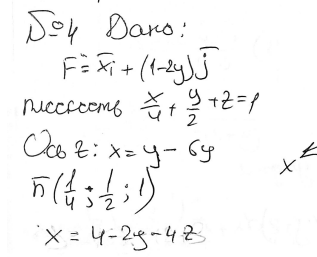 №4 Дано:
F̄ = x̄i + (1-2y)j̄
плоскость x/4 + y/2 + z = 1
Ось z: x = y - 6y
n̄(1/4; 1/2; 1)
x
x = 4 - 2y - 4z